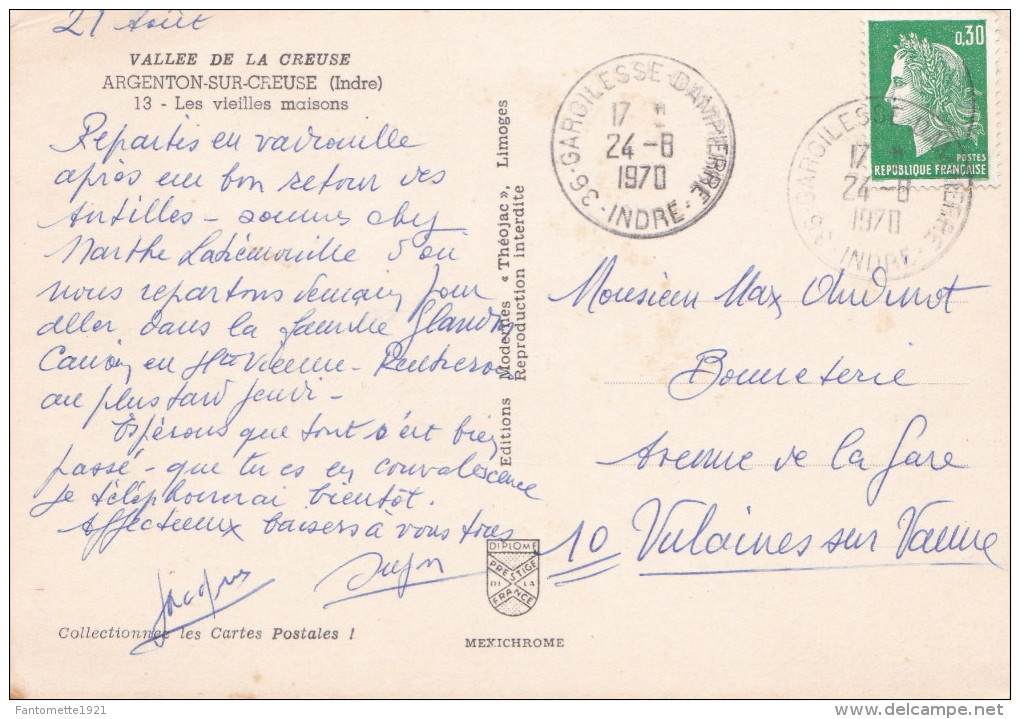 21 Août
VALLEE DE LA CREUSE
ARGENTON-SUR-CREUSE (Indre)
13 - Les vieilles maisons
Repartis en vadrouille
après un bon retour des
Antilles - sommes chez
Marthe d'où
nous repartons demain pour
aller dans la famille
en Hte Vienne - Rentrerons
au plus tard jeudi -
Espérons que tout s'est bien
passé - que tu es en convalescence
Je téléphonerai bientôt.
Affectueux baisers à vous tous
Jacques
Collectionnez les Cartes Postales !
Editions Modernes « Théojac », Limoges
Reproduction interdite
DIPLOME
PRESTIGE
DE LA
FRANCE
MEXICHROME
36 - GARGILESSE-DAMPIERRE
17 H
24 - 8
1970
- INDRE -
0,30
POSTES
REPUBLIQUE FRANÇAISE
36 - GARGILESSE DAMPIERRE
17 H
24 - 8
1970
INDRE
Monsieur Max
Bonneterie
Avenue de la Gare
10 Vulaines sur Vanne
Fantomette1921